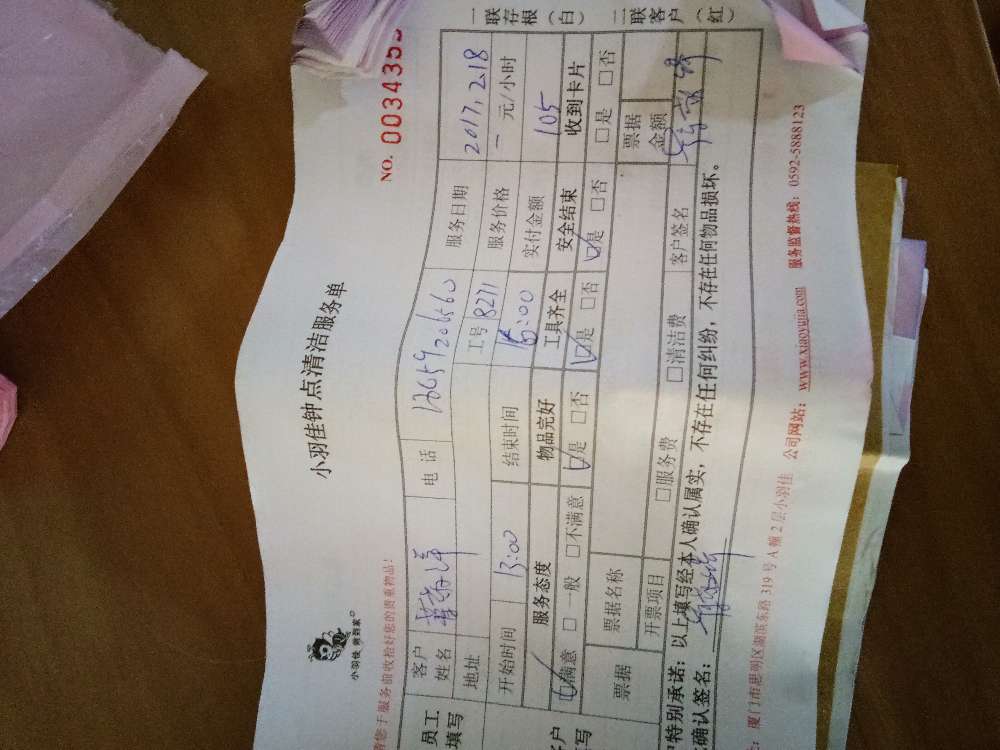 小羽佳钟点清洁服务单
小羽佳 佩到家
NO. 0034355
请您于服务前收检好您的贵重物品！
一联存根（白） 二联客户（红）
员工填写
客户姓名 电话 13659206560 服务日期 2017, 2.18
地址 工号 8271 服务价格 一 元/小时
开始时间 13:00 结束时间 16:00 实付金额 105
服务态度 物品完好 工具齐全 安全结束 收到卡片
☑满意 □一般 □不满意 ☑是 □否 ☑是 □否 ☑是 □否 □是 □否
票据 票据名称 票据金额
开票项目 □服务费 □清洁费 客户签名
特别承诺：以上填写经本人确认属实，不存在任何纠纷，不存在任何物品损坏。
确认签名：
厦门市思明区湖滨东路 319 号 A 幢 2 层小羽佳 公司网站：www.xiaoyujia.com 服务监督热线：0592-5888123